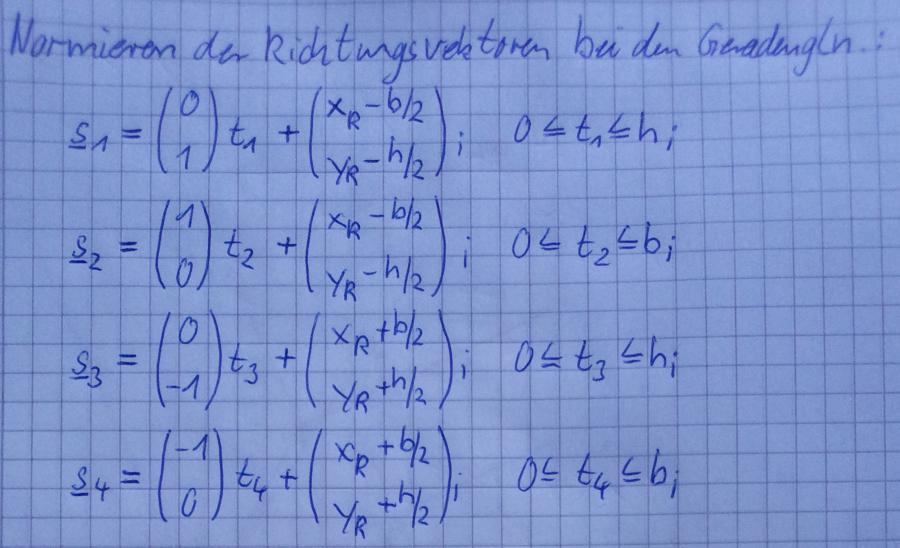 Normieren der Richtungsvektoren bei den Geradengln.:
s̲₁ = (0 1) t₁ + (x_R - b/2 y_R - h/2); 0 ≤ t₁ ≤ h;
s̲₂ = (1 0) t₂ + (x_R - b/2 y_R - h/2); 0 ≤ t₂ ≤ b;
s̲₃ = (0 -1) t₃ + (x_R + b/2 y_R + h/2); 0 ≤ t₃ ≤ h;
s̲₄ = (-1 0) t₄ + (x_R + b/2 y_R + h/2); 0 ≤ t₄ ≤ b;